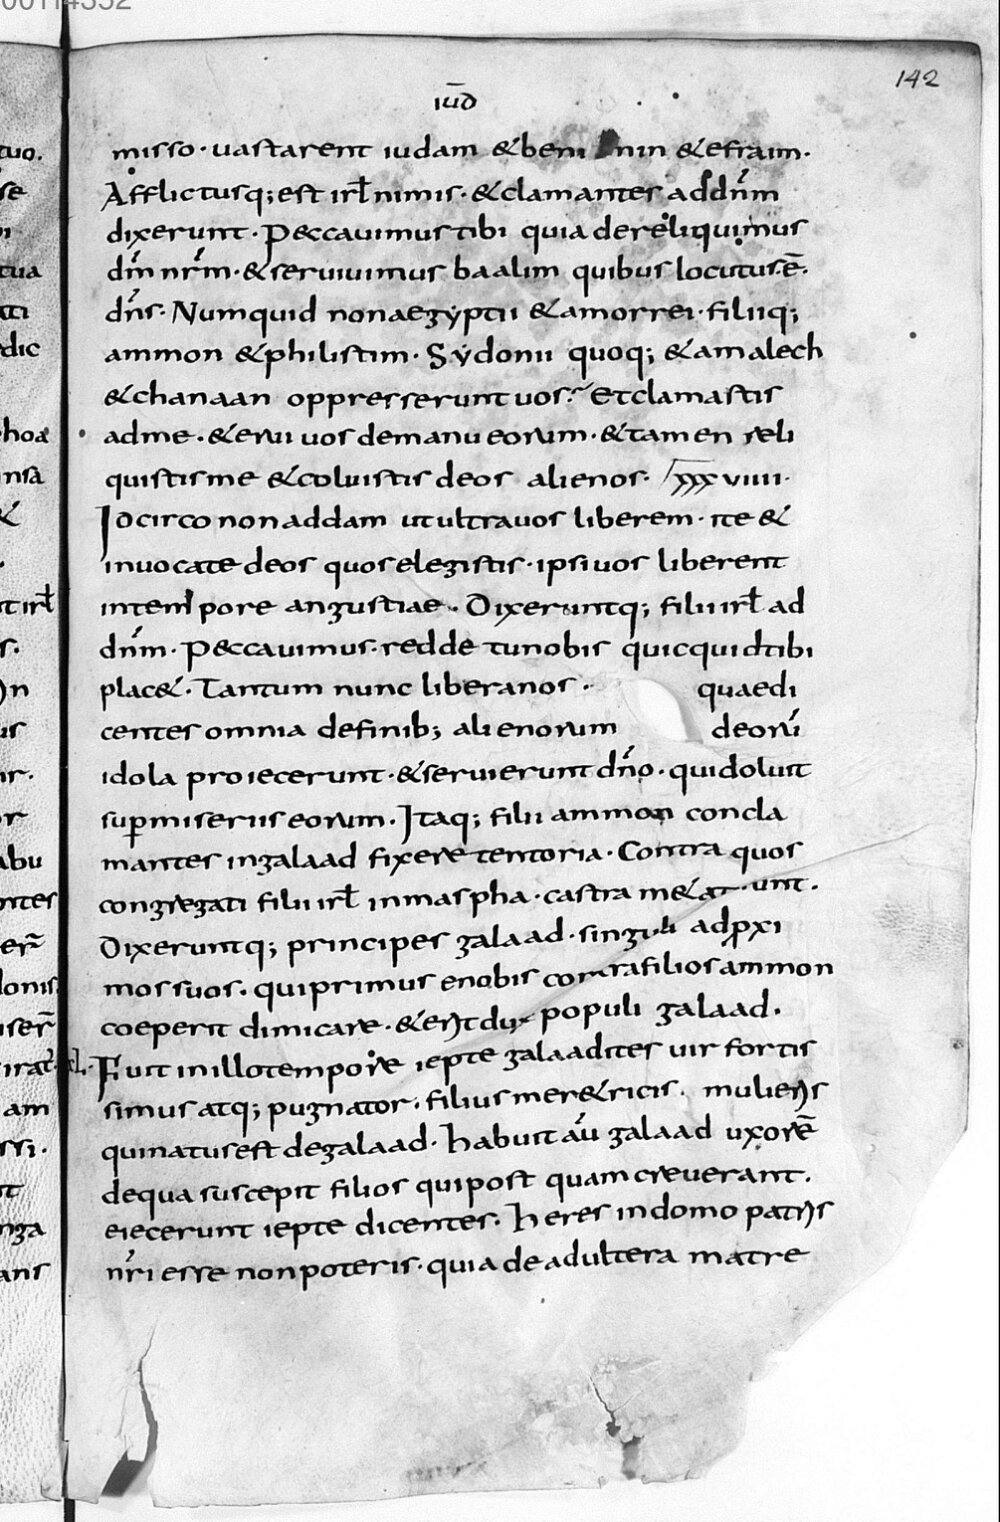 142
iud̄
misso · uastarent iudam & beni min & efraim ·
Afflictusq; est irl̄ nimis · & clamantes ad dn̄m
dixerunt · Peccauimus tibi quia dereliquimus
dm̄ nr̄m · & seruiuimus baalim quibus locutus ē ·
dn̄s · Numquid non aegẏptii & amorrei · filiiq;
ammon & philistim · Sẏdonii quoq; & amalech
& chanaan oppresserunt uos? Et clamastis
ad me · & erui uos de manu eorum · & tamen reli
quistis me & coluistis deos alienos · xxxviiii ·
Idcirco non addam ut ultra uos liberem · ite &
inuocate deos quos elegistis · ipsi uos liberent
in tempore angustiae · Dixeruntq; filii irl̄ ad
dn̄m · Peccauimus · redde tu nobis quicquid tibi
plac& · Tantum nunc libera nos · quae di
centes omnia de finib; alienorum deorū
idola proiecerunt · & seruierunt dn̄o · qui doluit
sup miseriis eorum · Itaq; filii ammon concla
mantes in galaad fixere tentoria · Contra quos
congregati filii irl̄ in maspha · castra m&at unt ·
Dixeruntq; principes galaad · singuli ad proxi
mos suos · qui primus e nobis contra filios ammon
coeperit dimicare · & erit dux populi galaad ·
Fuit in illo tempore iepte galaadites uir fortis
simus atq; pugnator · filius mer&ricis · mulieris
qui natus est de galaad · habuit aū galaad uxorē
de qua suscepit filios qui postquam creuerant ·
eiecerunt iepte dicentes · heres in domo patris
nr̄i esse non poteris · quia de adultera matre